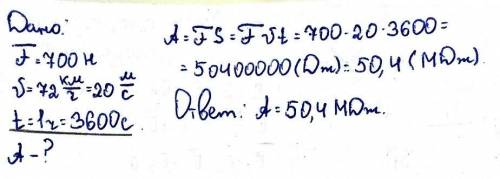 Дано:
F=700 Н
υ=72 км/ч=20 м/с
t=1ч=3600с
A-?
A=FS=Fυt=700·20·3600=
=50400000(Дж)=50,4(МДж).
Ответ: A=50,4 МДж.